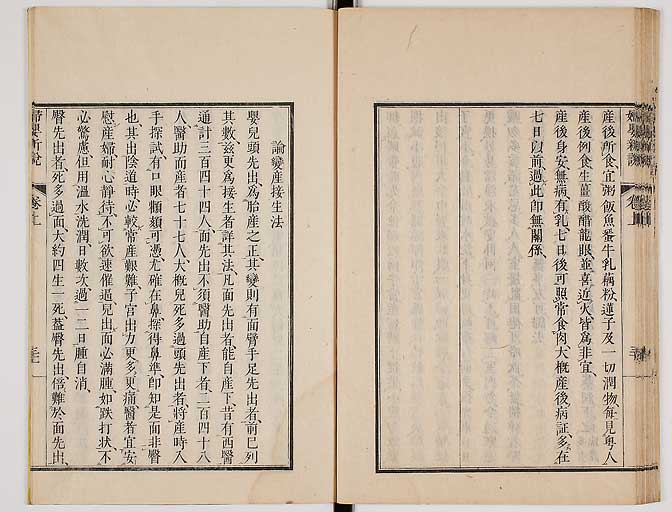 產後所食宜粥飯魚番牛乳藕粉蓮子及一切潤物每見粵人
產後例食生薑酸醋龍眼並喜近火皆為非宜
產後身安無病有乳七日後可照常食肉大概產後病証多在
七日以前過此卽無關係
論變產接生法
嬰兒頭先出為胎產之正其變則有面臂手足先出者前巳列
其數茲更為接生者詳其法凡面先出者能自產下昔有西醫
通計三百四十四人面先出不須醫助自產下者二百四十八
人醫助而產者七十七人大概兒死多過頭先出者將產時入
手探試有口眼顴頦可憑尤確在鼻探得鼻準卽知是面非臀
也其出陰道時必較常產艱難子宮出力更多更痛醫者宜安
慰產婦耐心靜待不可欲速催逼兒出面必滿腫如跌打狀不
必驚慮但用溫水洗潤日數次過一二日腫自消
臀先出者死多過面大約四生一死蓋臀先出倍難於面先出
婦嬰新說